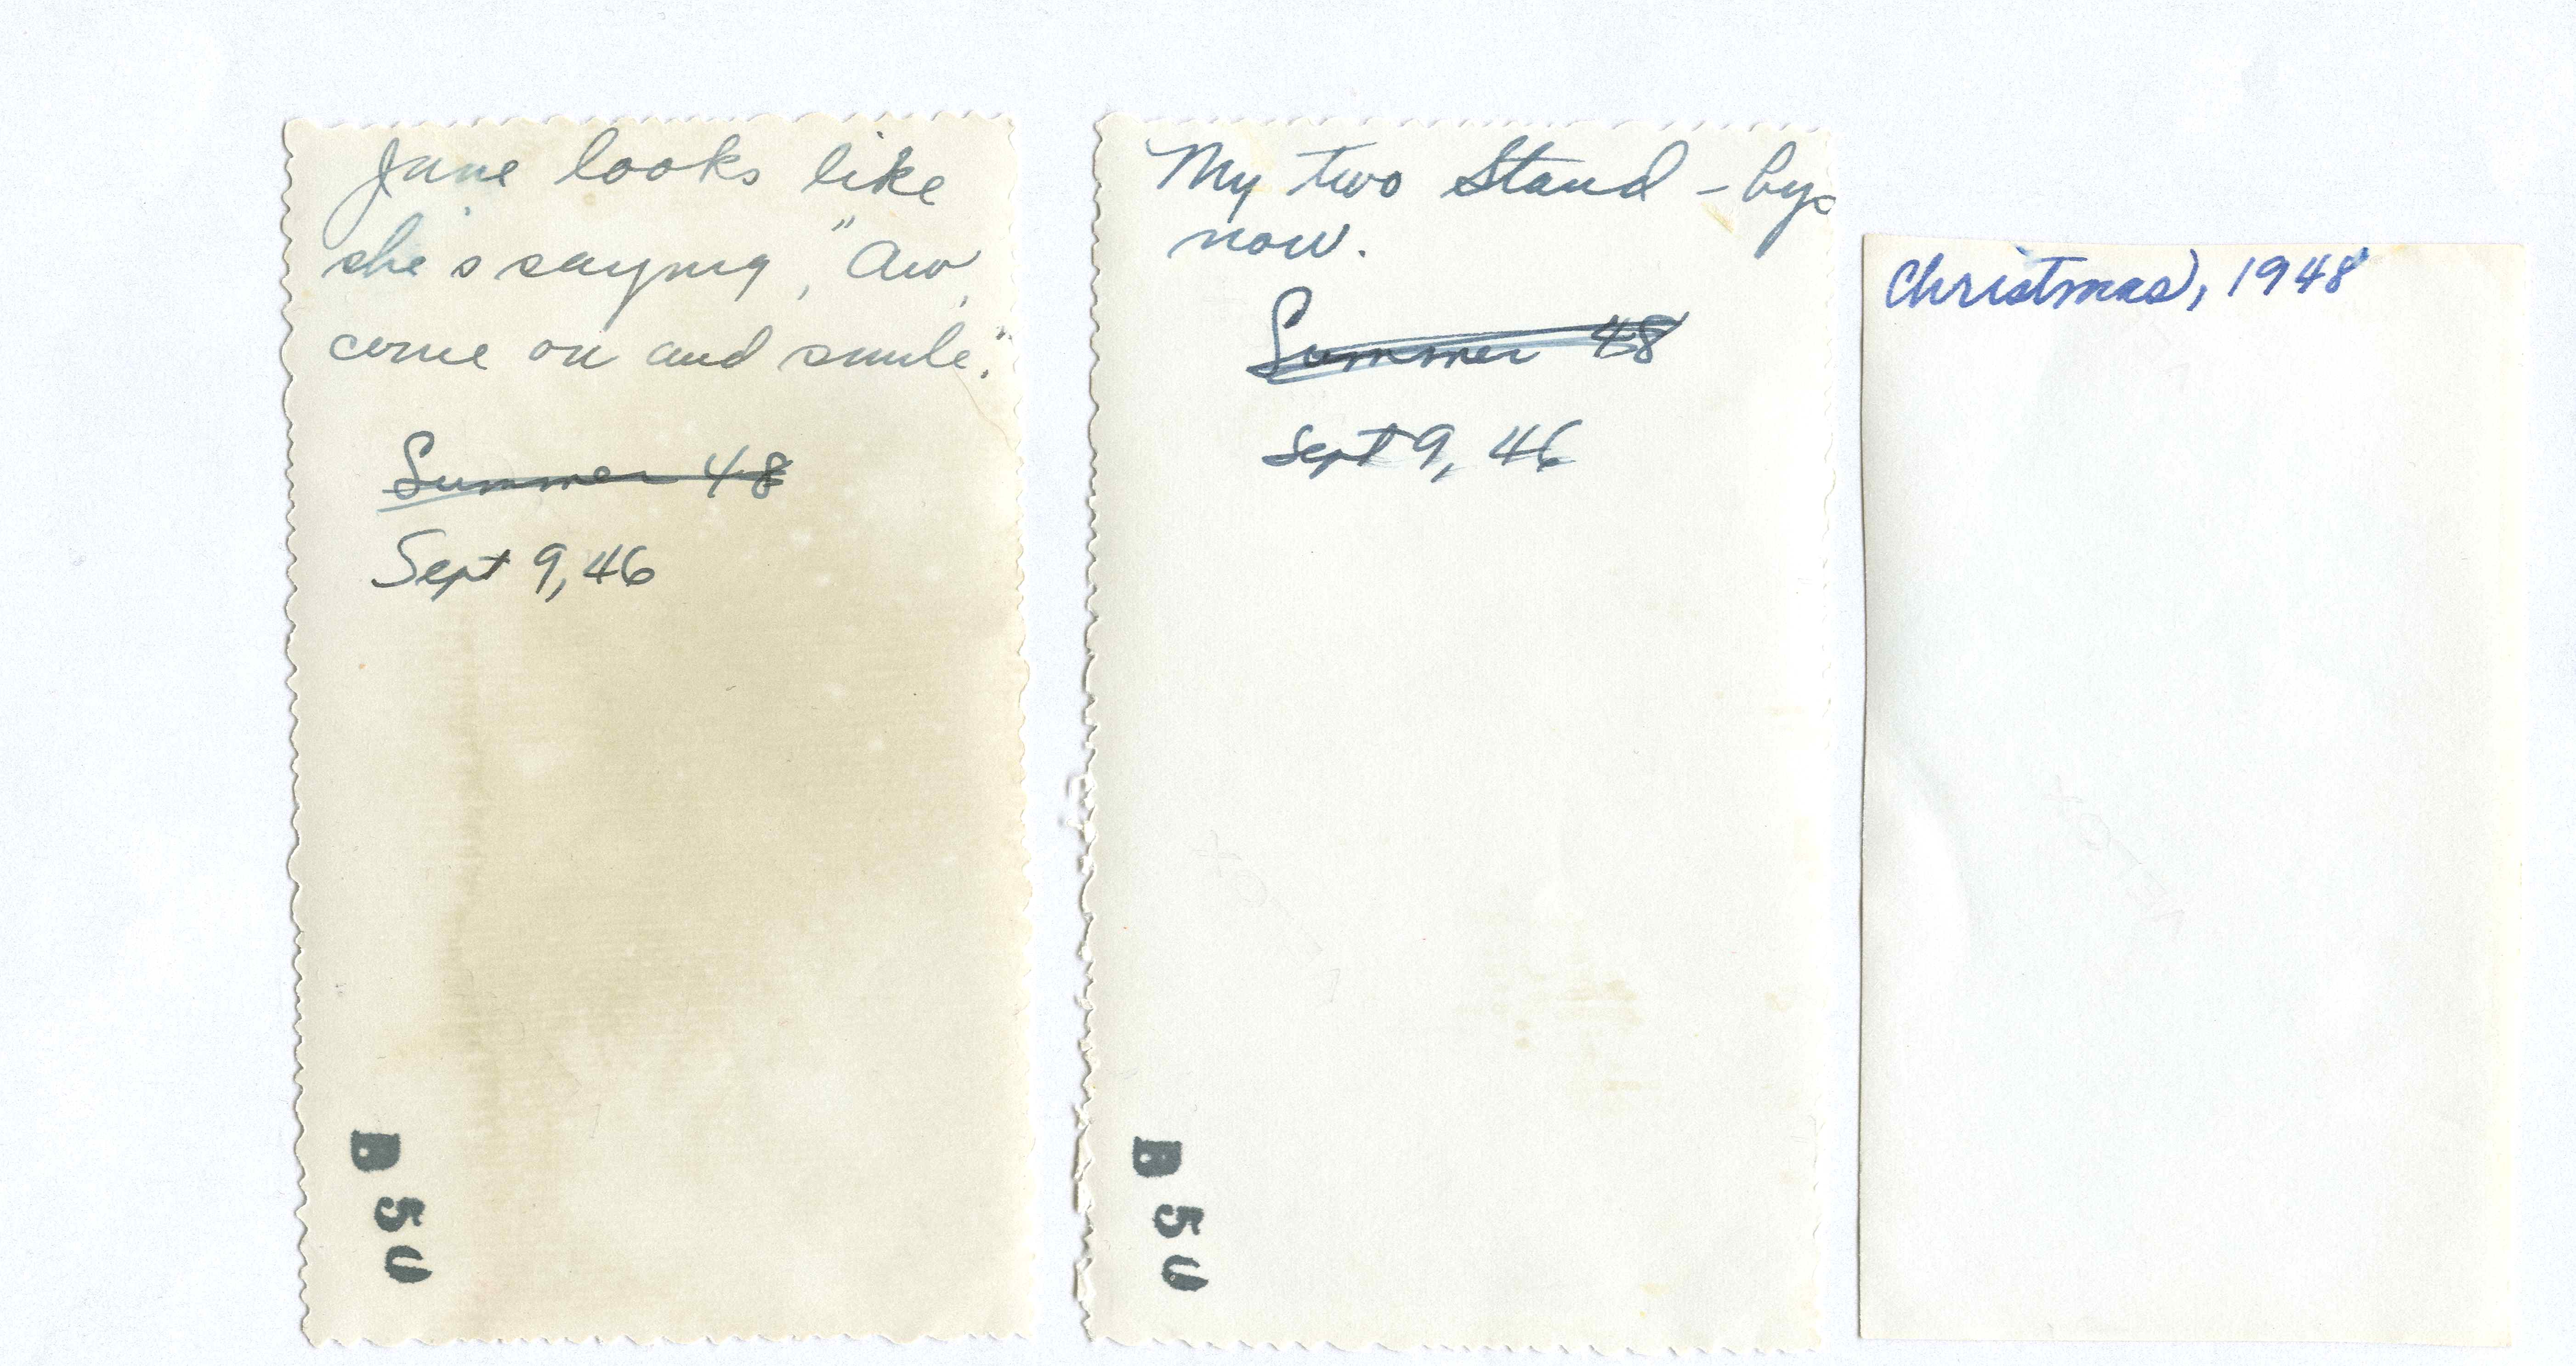 Jane looks like
she's saying, "Aw,
come on and smile."
Summer 48
Sept 9, 46
B 50
My two Stand-bys
now.
Summer 48
Sept 9, 46
B 50
Christmas, 1948